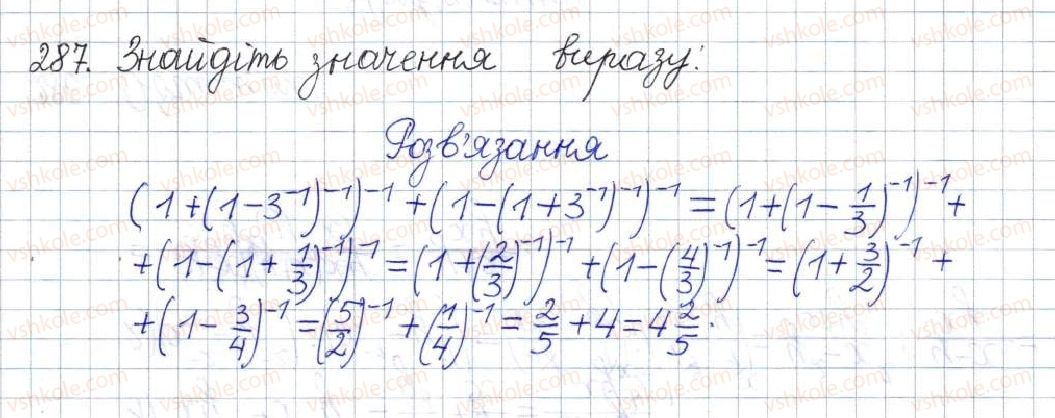 287. Знайдіть значення виразу:
Розв'язання
(1+(1-3⁻¹)⁻¹)⁻¹+(1-(1+3⁻¹)⁻¹)⁻¹=(1+(1-1/3)⁻¹)⁻¹+
+(1-(1+1/3)⁻¹)⁻¹=(1+(2/3)⁻¹)⁻¹+(1-(4/3)⁻¹)⁻¹=(1+3/2)⁻¹+
+(1-3/4)⁻¹=(5/2)⁻¹+(1/4)⁻¹=2/5+4=4 2/5.